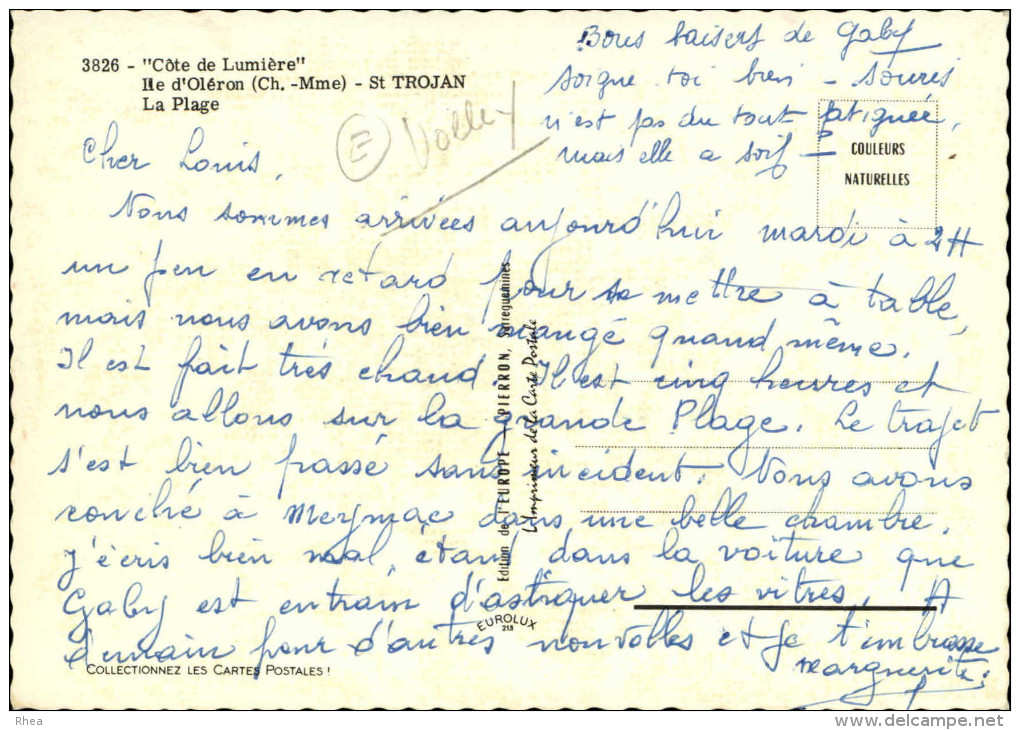 3826 - "Côte de Lumière"
Ile d'Oléron (Ch. -Mme) - St TROJAN
La Plage
Bons baisers de Gaby
soigne toi bien - Souris
n'est pas du tout fatiguée,
mais elle a soif -
E Volley
COULEURS
NATURELLES
Cher Louis,
Nous sommes arrivées aujourd'hui mardi à 2H
un peu en retard pour se mettre à table,
mais nous avons bien mangé quand même.
Il est fait très chaud. Il est cinq heures et
nous allons sur la grande Plage. Le trajet
s'est bien passé sans incident. Nous avons
couché à Meymac dans une belle chambre.
J'écris bien mal, étant dans la voiture que
Gaby est entrain d'astiquer les vitres. A
demain pour d'autres nouvelles et je t'embrasse
Marguerite.
Edition de l'EUROPE - PIERRON, Sarreguemines
L'Imprimeur de la Carte Postale
EUROLUX
213
COLLECTIONNEZ LES CARTES POSTALES !
Rhea
www.delcampe.net